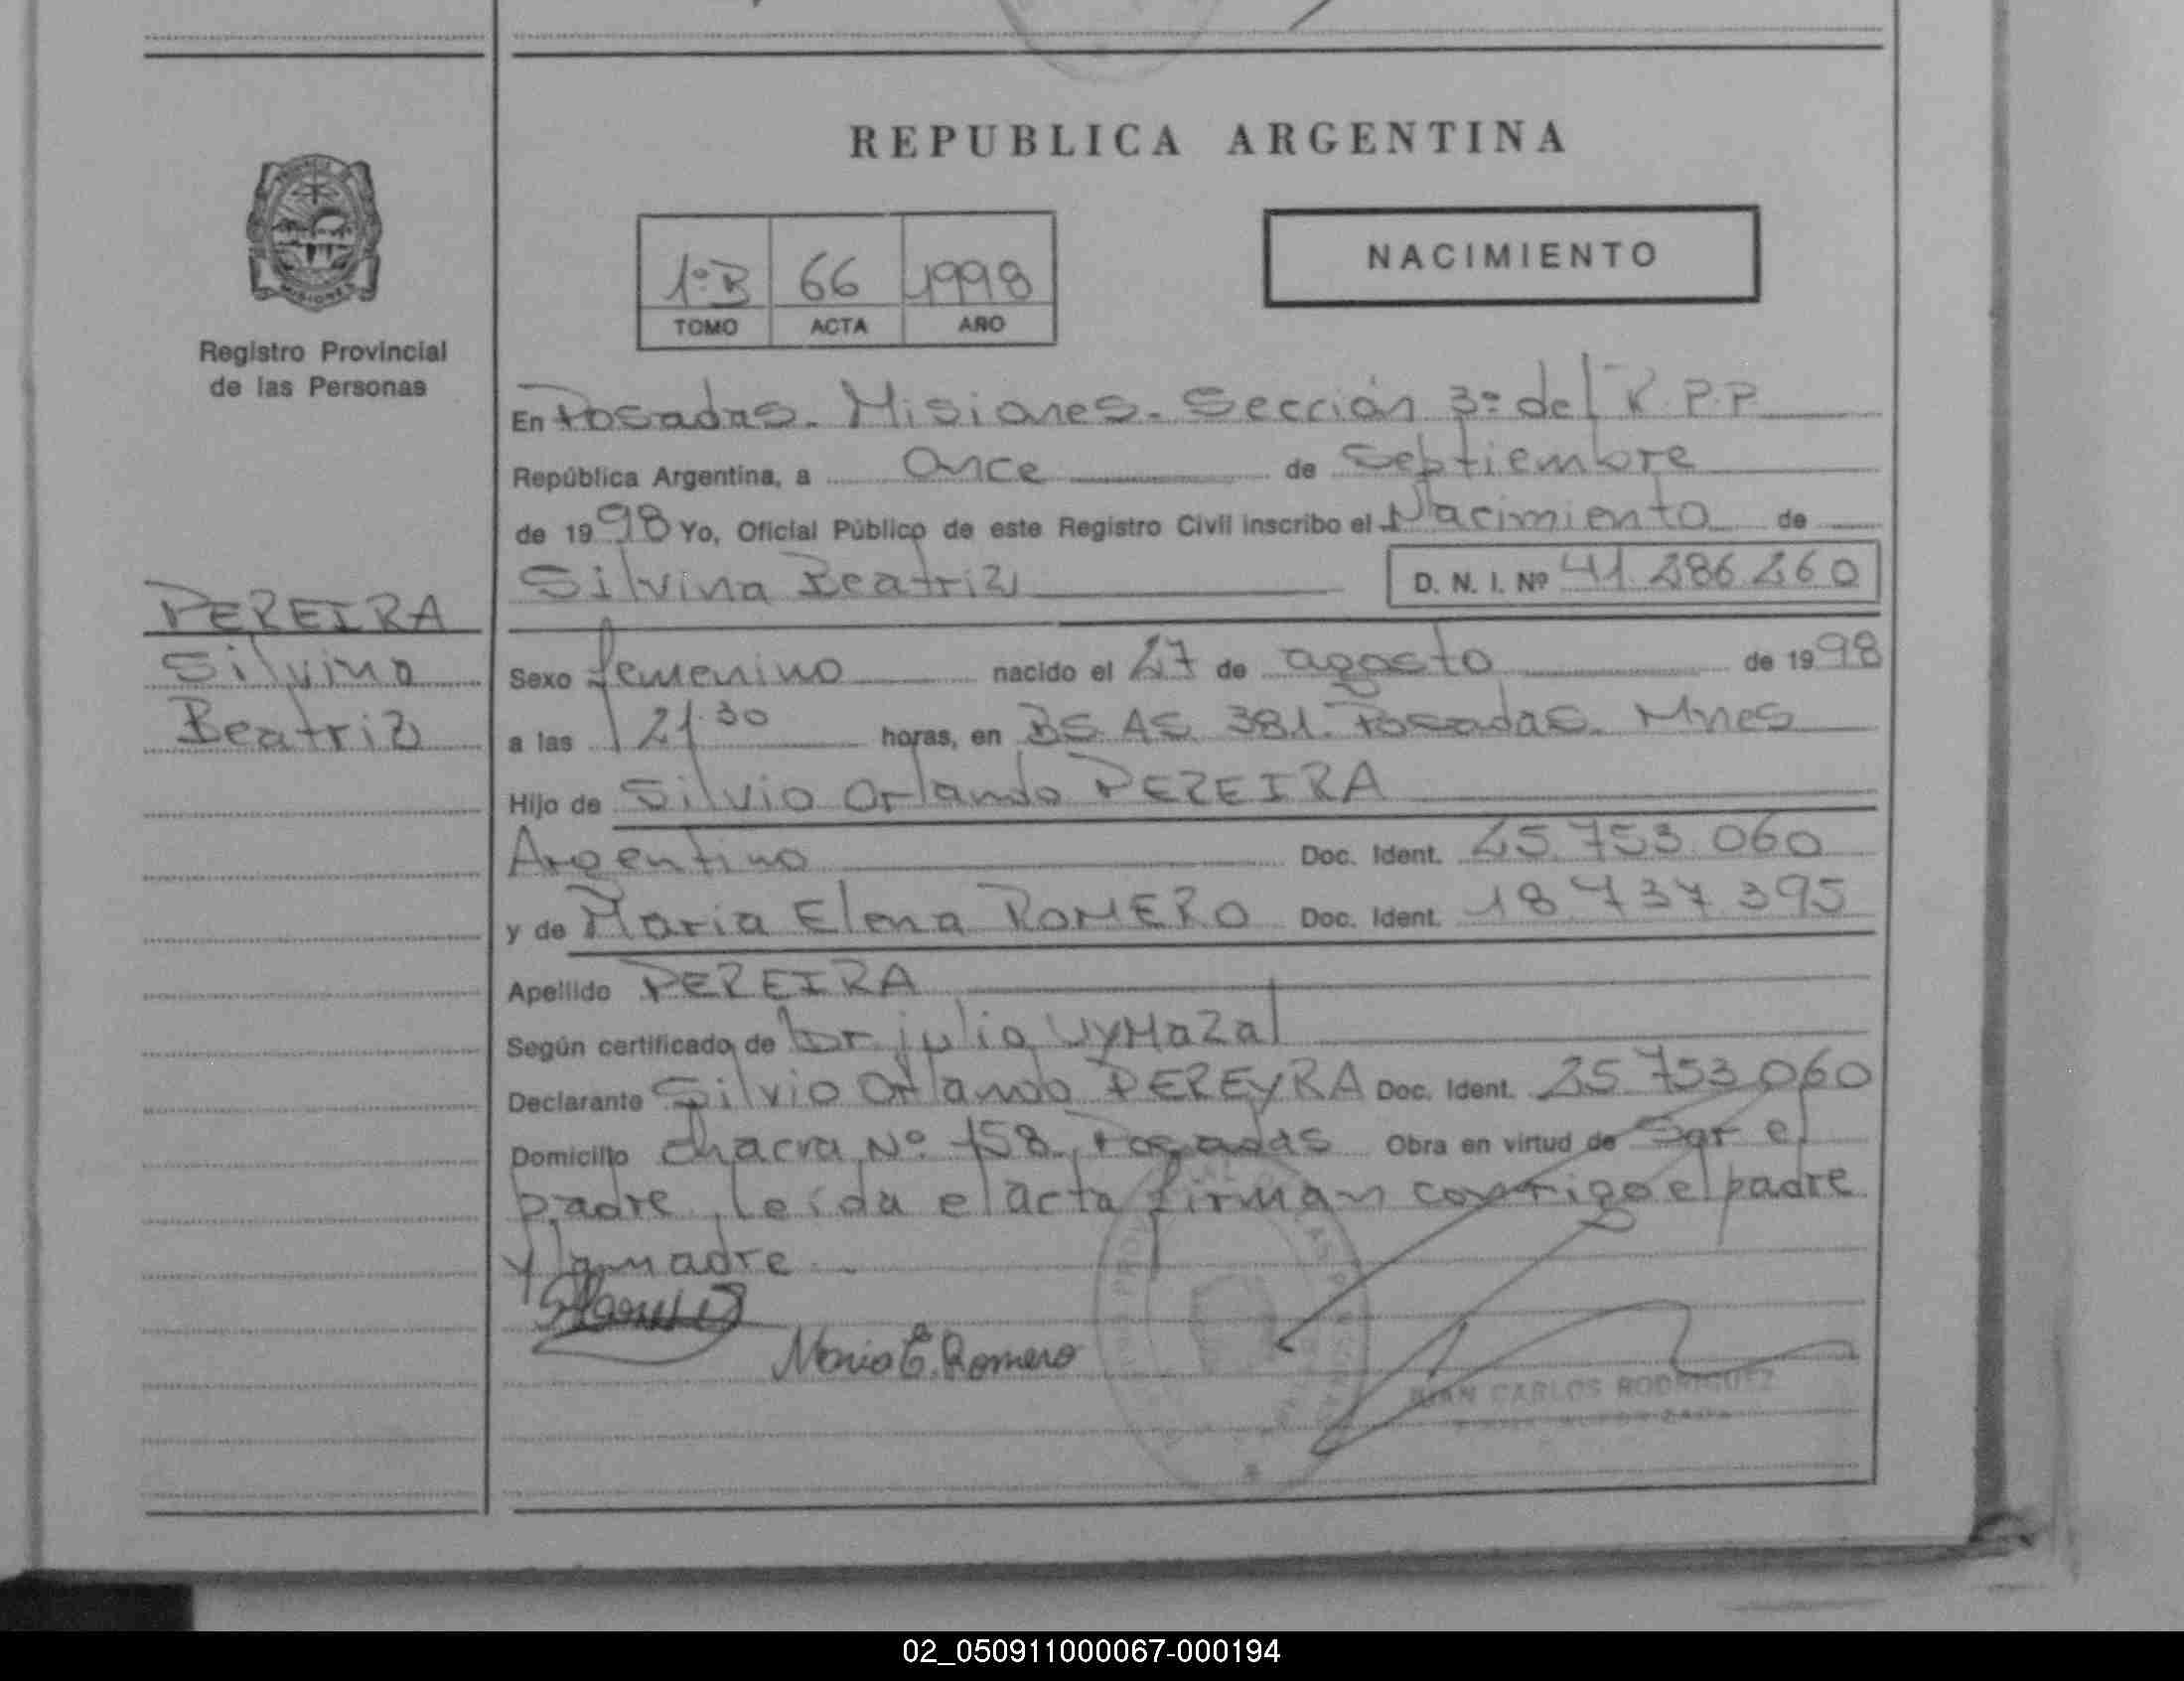 REPUBLICA ARGENTINA
NACIMIENTO
1º B 66 1998
TOMO ACTA AÑO
Registro Provincial
de las Personas
MISIONES
PEREIRA
Silvina
Beatriz
En Posadas - Misiones - Sección 3º del R.P.P
República Argentina, a Once de Septiembre
de 1998 Yo, Oficial Público de este Registro Civil inscribo el Nacimiento de
Silvina Beatriz D. N. I. Nº 41.286.260
Sexo femenino nacido el 27 de agosto de 1998
a las 21.30 horas, en BS AS 381. Posadas. Mnes
Hijo de Silvio Orlando PEREIRA
Argentino Doc. Ident. 25.753.060
y de Maria Elena ROMERO Doc. Ident. 18.737.395
Apellido PEREIRA
Según certificado de Dr. julio VyMaZal
Declarante Silvio Orlando PEREYRA Doc. Ident. 25.753.060
Domicilio chacra Nº 158, Posadas Obra en virtud de Ser el
padre, leída el acta firman conmigo el padre
y la madre.
Maria E. Romero
JUAN CARLOS RODRIGUEZ
02_050911000067-000194